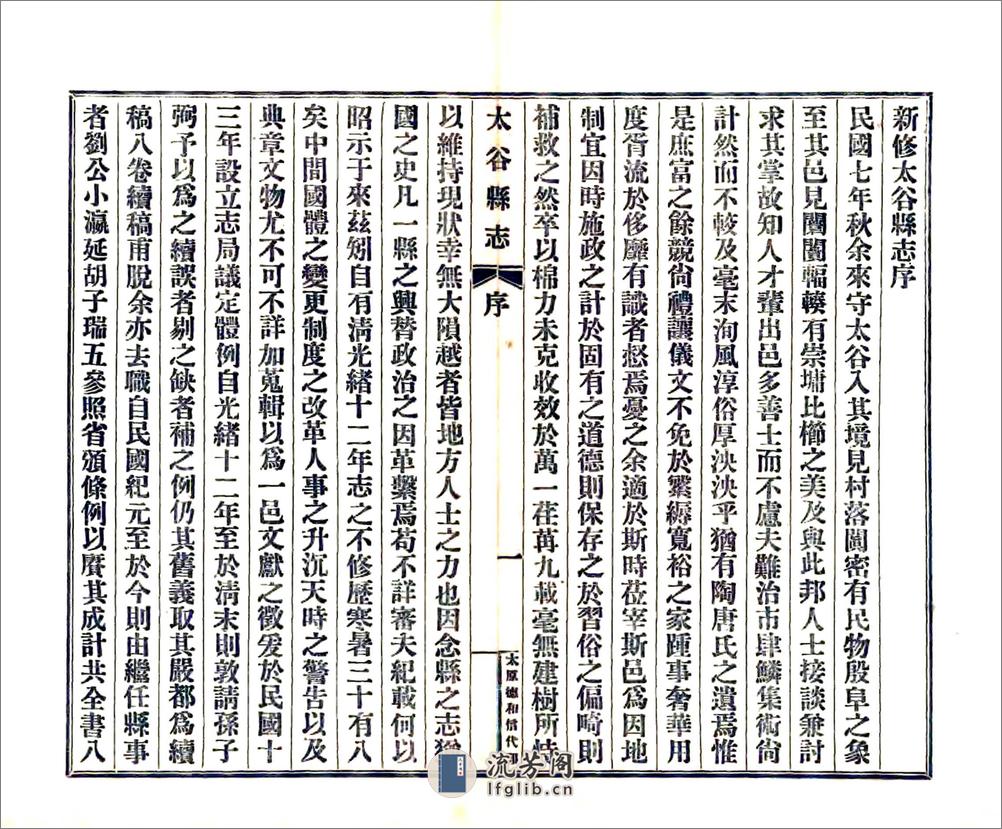 新修太谷縣志序
民國七年秋余來守太谷入其境見村落闐密有民物殷阜之象
至其邑見闤闠輻輳有崇墉比櫛之美及與此邦人士接談兼討
求其掌故知人才輩出邑多善士而不慮夫難治市肆鱗集術尙
計然而不較及毫末洵風淳俗厚泱泱乎猶有陶唐氏之遺焉惟
是庶富之餘競尙禮讓儀文不免於繁縟寬裕之家踵事奢華用
度胥流於侈靡有識者愸焉憂之余適於斯時莅宰斯邑爲因地
制宜因時施政之計於固有之道德則保存之於習俗之偏畸則
補救之然卒以棉力未克收效於萬一荏苒九載毫無建樹所恃
太谷縣志
序
一
太原德和信代印
以維持現狀幸無大隕越者皆地方人士之力也因念縣之志猶
國之史凡一縣之興替政治之因革繫焉苟不詳審夫紀載何以
昭示于來茲矧自有淸光緒十二年志之不修歷寒暑三十有八
矣中間國體之變更制度之改革人事之升沉天時之警告以及
典章文物尤不可不詳加蒐輯以爲一邑文獻之徵爰於民國十
三年設立志局議定體例自光緒十二年至於淸末則敦請孫子
弼予以爲之續誤者剔之缺者補之例仍其舊義取其嚴都爲續
稿八卷續稿甫脫余亦去職自民國紀元至於今則由繼任縣事
者劉公小瀛延胡子瑞五參照省頒條例以賡其成計共全書八
流芳阁
lfglib.cn